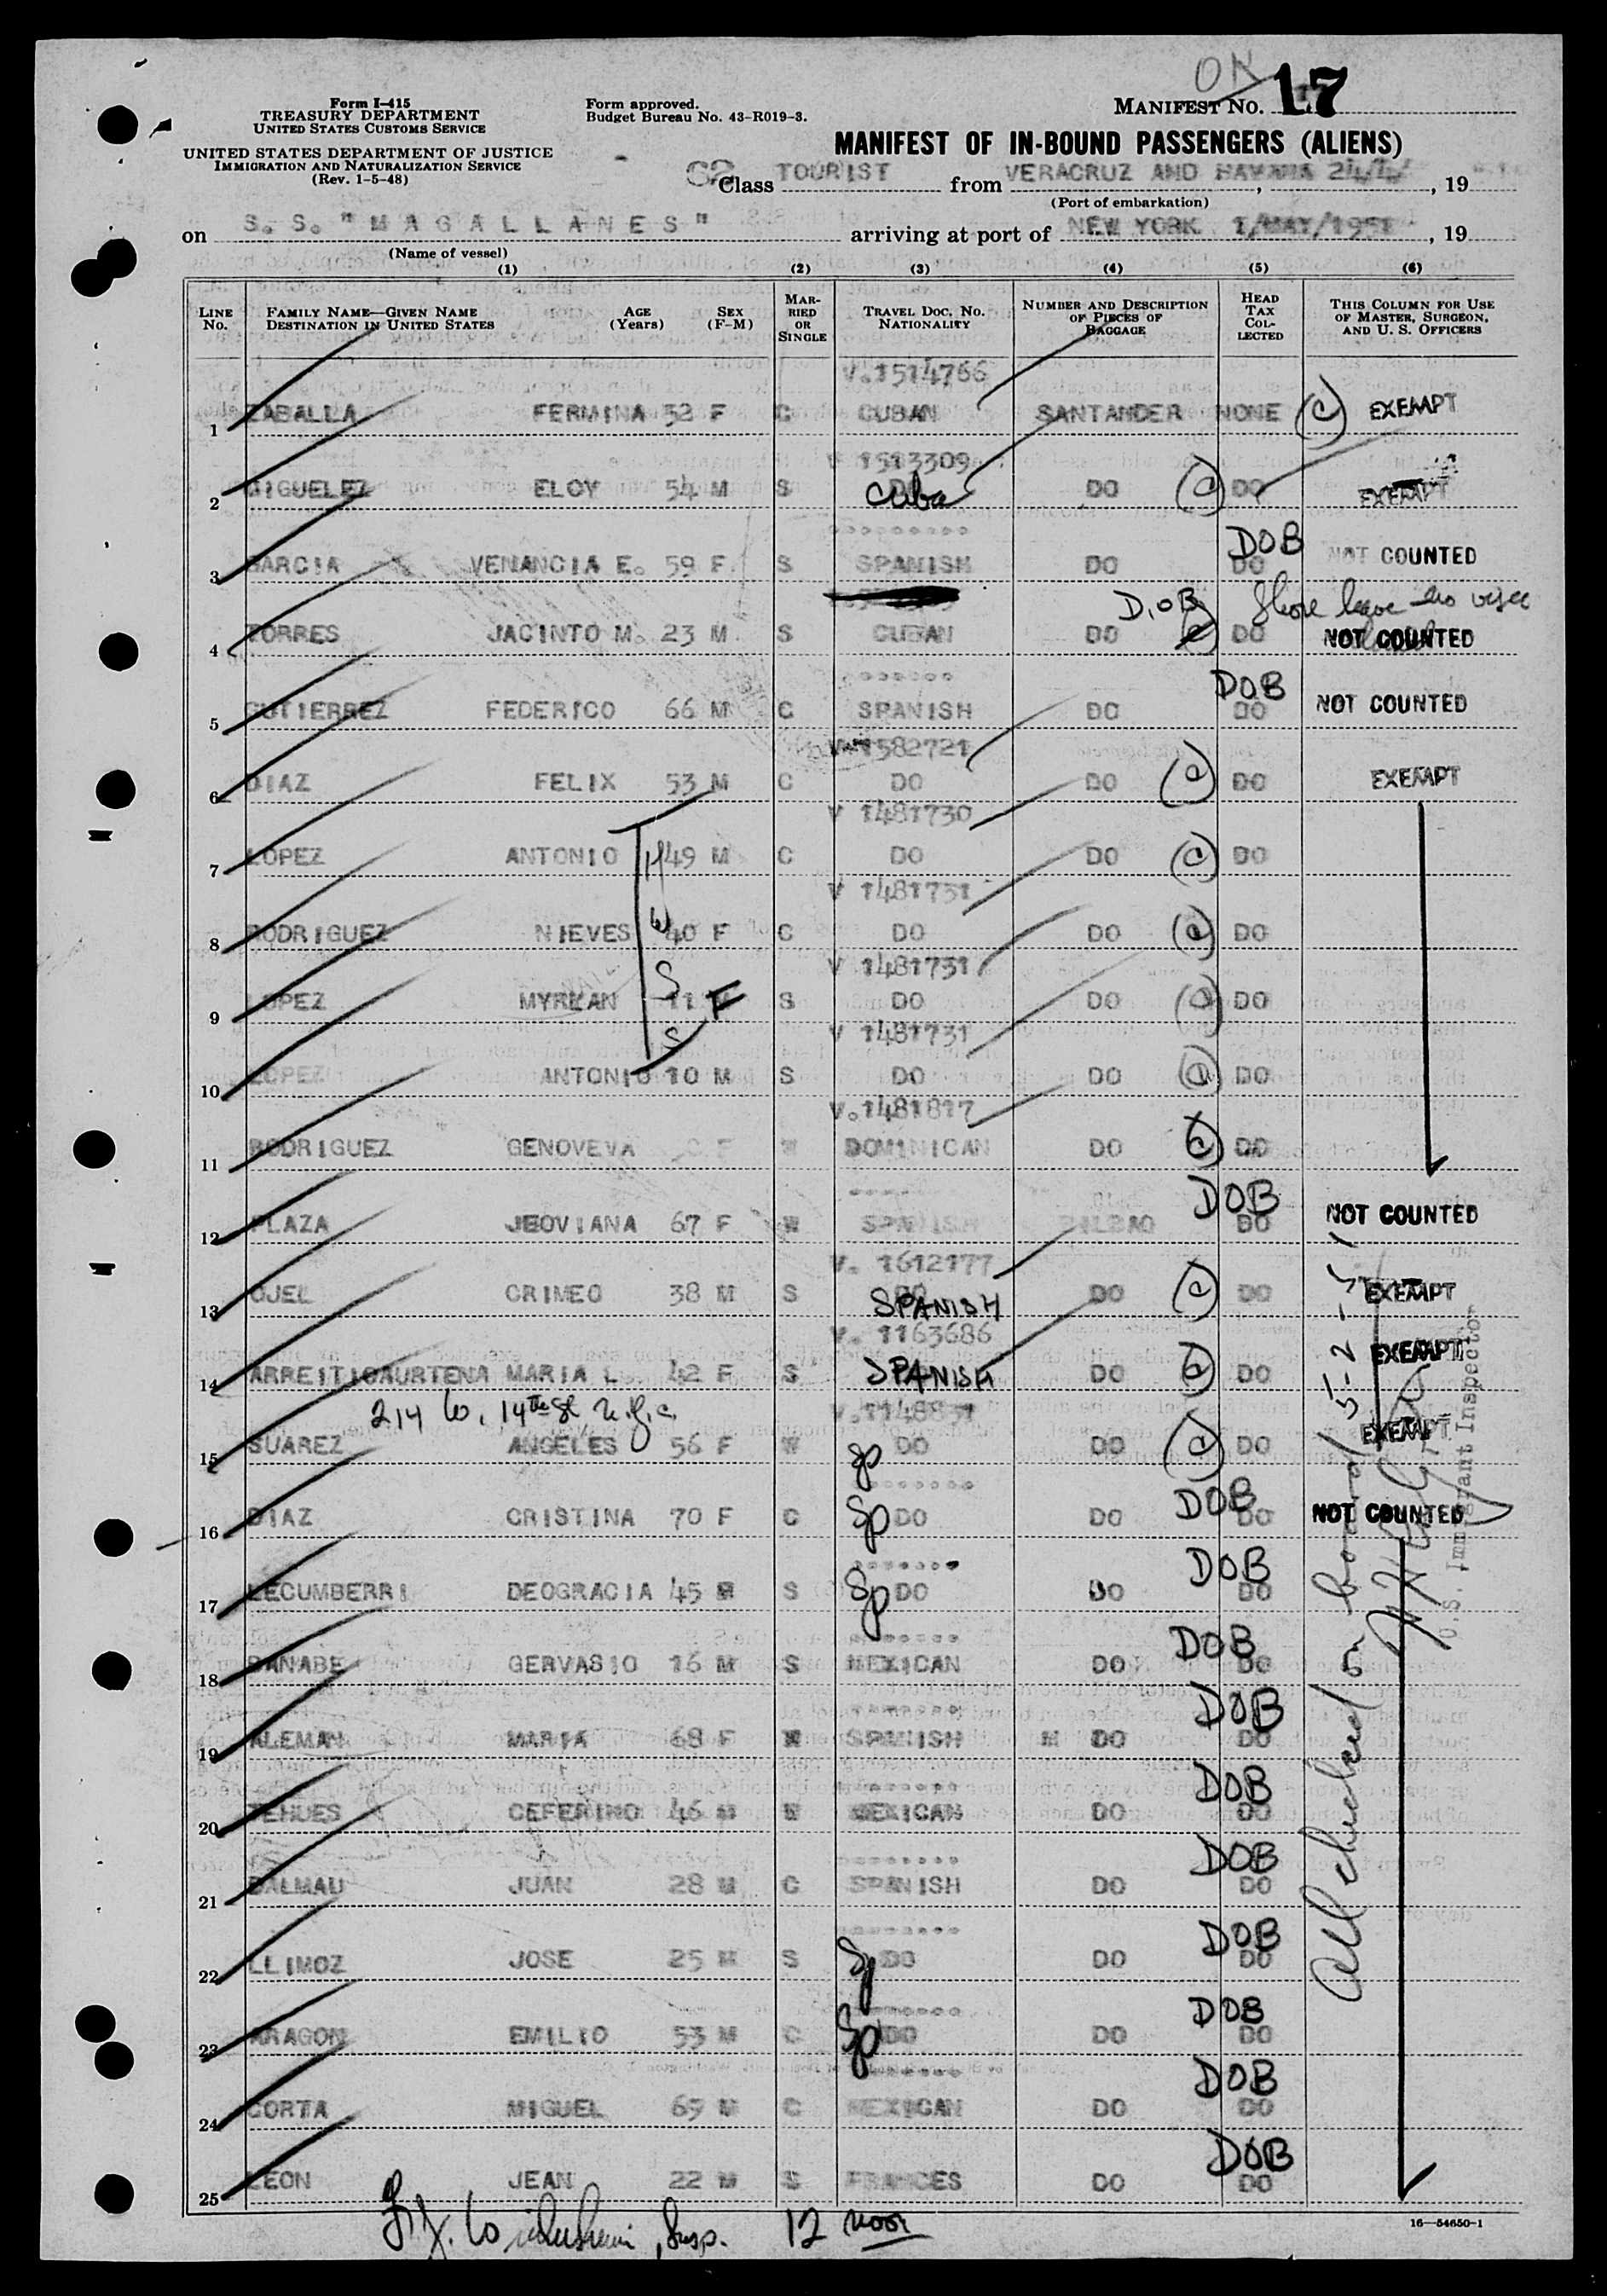 OK
Form I-415
TREASURY DEPARTMENT
UNITED STATES CUSTOMS SERVICE
UNITED STATES DEPARTMENT OF JUSTICE
IMMIGRATION AND NATURALIZATION SERVICE
(Rev. 1-5-48)
Form approved.
Budget Bureau No. 43-R019-3.
MANIFEST NO. 17
MANIFEST OF IN-BOUND PASSENGERS (ALIENS)
62 Class TOURIST from VERACRUZ AND HAVANA, 19
(Port of embarkation)
on S. S. "MAGALLANES" arriving at port of NEW YORK 1/MAY/1951, 19
(Name of vessel)
(1) (2) (3) (4) (5) (6)
LINE No. FAMILY NAME—GIVEN NAME DESTINATION IN UNITED STATES AGE (Years) SEX (F-M) MARRIED OR SINGLE TRAVEL DOC. NO. NATIONALITY NUMBER AND DESCRIPTION OF PIECES OF BAGGAGE HEAD TAX COLLECTED THIS COLUMN FOR USE OF MASTER, SURGEON, AND U. S. OFFICERS
V.1514766
1 ZABALLA FERMINA 52 F C CUBAN SANTANDER NONE (C) EXEMPT
V 1513309
2 DIGUELEZ ELOY 54 M S Cuba DO (C) DO EXEMPT
DOB
3 GARCIA VENANCIA E. 59 F S SPANISH DO DO NOT COUNTED
D.O.B Shore leave no visa
4 TORRES JACINTO M. 23 M S CUBAN DO DO NOT COUNTED
DOB
5 GUTIERREZ FEDERICO 66 M C SPANISH DO DO NOT COUNTED
V 1582721
6 DIAZ FELIX 53 M C DO DO (C) DO EXEMPT
V 1481730
7 LOPEZ ANTONIO H 49 M C DO DO (C) DO
V 1481731
8 RODRIGUEZ NIEVES W 40 F C DO DO (C) DO
V 1481731
9 LOPEZ MYRIAN S 11 F S DO DO (C) DO
V 1481731
10 LOPEZ ANTONIO S 10 M S DO DO (C) DO
V.1481817
11 RODRIGUEZ GENOVEVA F W DOMINICAN DO (C) DO
DOB
12 PLAZA JEOVIANA 67 F W SPANISH BILBAO DO NOT COUNTED
V. 1612177
13 OJEL CRIMEO 38 M S SPANISH DO (C) DO EXEMPT
V. 1163686
14 ARREITIGAURTENA MARIA L. 42 F S SPANISH DO (C) DO EXEMPT
214 W. 14th St N.Y.C.
V.1148831
15 SUAREZ ANGELES 56 F W Sp DO DO (C) DO EXEMPT
DOB
16 DIAZ CRISTINA 70 F C Sp DO DO DO NOT COUNTED
DOB
17 LECUMBERRI DEOGRACIA 45 M S Sp DO DO DO
DOB
18 BANABE GERVASIO 16 M S MEXICAN DO DO
DOB
19 ALEMAN MARIA 68 F W SPANISH DO DO
DOB
20 TEHUES CEFERINO 46 M W MEXICAN DO DO
DOB
21 DALMAU JUAN 28 M C SPANISH DO DO
DOB
22 LLIMOZ JOSE 25 M S Sp DO DO DO
DOB
23 ARAGON EMILIO 53 M C Sp DO DO DO
DOB
24 CORTA MIGUEL 69 M C MEXICAN DO DO
DOB
25 LEON JEAN 22 M S FRANCES DO DO
All checked on board 5-2-51
U.S. Immigrant Inspector
Insp. 12 noon
16—54650-1